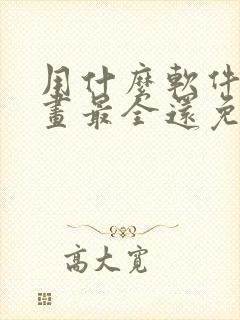 用什麼軟件
畫最全還免
高大寬